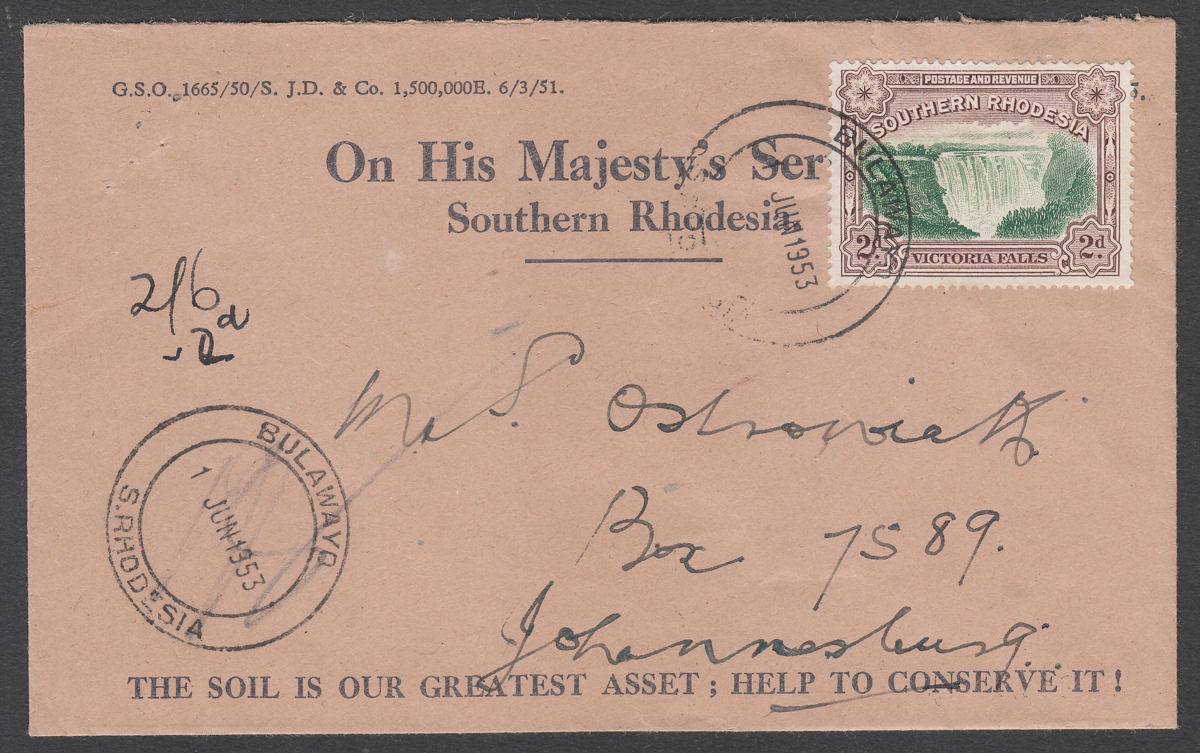 G.S.O. 1665/50/S. J.D. & Co. 1,500,000E. 6/3/51.
5.
On His Majesty's Ser
Southern Rhodesia
POSTAGE AND REVENUE
SOUTHERN RHODESIA
2d. VICTORIA FALLS 2d.
BULAWAYO
JUN 1953
2/6d
-2
Box 7589.
Johannesburg.
BULAWAYO
1 JUN 1953
S. RHODESIA
THE SOIL IS OUR GREATEST ASSET ; HELP TO CONSERVE IT !